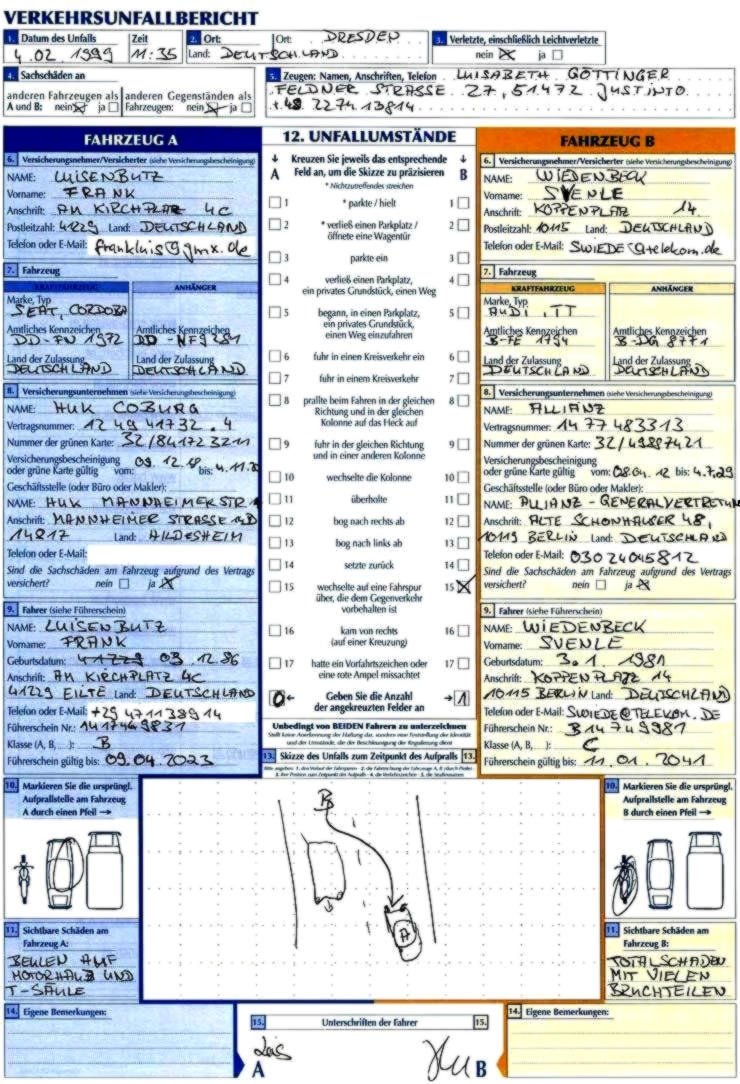 VERKEHRSUNFALLBERICHT
1. Datum des Unfalls Zeit 2. Ort: Ort: DRESDEN 3. Verletzte, einschließlich Leichtverletzte
4.02.1999 11:35 Land: DEUTSCHLAND nein ja
4. Sachschäden an 5. Zeugen: Namen, Anschriften, Telefon LUISABETH GÖTTINGER
anderen Fahrzeugen als anderen Gegenständen als FELDNER STRASSE 27, 51472 JUSTINTO
A und B: nein ja Fahrzeugen: nein ja +49 2274 13814
FAHRZEUG A
6. Versicherungsnehmer/Versicherter (siehe Versicherungsbescheinigung)
NAME: LUISENBUTZ
Vorname: FRANK
Anschrift: AM KIRCHPLATZ 4C
Postleitzahl: 41229 Land: DEUTSCHLAND
Telefon oder E-Mail: frankluis@gmx.de
7. Fahrzeug
KRAFTFAHRZEUG ANHÄNGER
Marke, Typ
SEAT, CORDOBA
Amtliches Kennzeichen Amtliches Kennzeichen
DD-FN 1972 DD-NF9281
Land der Zulassung Land der Zulassung
DEUTSCHLAND DEUTSCHLAND
8. Versicherungsunternehmen (siehe Versicherungsbescheinigung)
NAME: HUK COBURG
Vertragsnummer: 12 49 41732.4
Nummer der grünen Karte: 32/84172 3211
Versicherungsbescheinigung
oder grüne Karte gültig vom: 09.12. bis: 4.11.
Geschäftsstelle (oder Büro oder Makler):
NAME: HUK MANNHEIMER STR
Anschrift: MANNHEIMER STRASSE
14817 Land: HILDESHEIM
Telefon oder E-Mail:
Sind die Sachschäden am Fahrzeug aufgrund des Vertrags
versichert? nein ja
9. Fahrer (siehe Führerschein)
NAME: LUISENBUTZ
Vorname: FRANK
Geburtsdatum: 41229 03.12.86
Anschrift: AM KIRCHPLATZ 4C
41229 EILTE Land: DEUTSCHLAND
Telefon oder E-Mail: +29 4711389 14
Führerschein Nr.: 141746 9831
Klasse (A, B, ....): B
Führerschein gültig bis: 09.04.2023
12. UNFALLUMSTÄNDE
A Kreuzen Sie jeweils das entsprechende B
Feld an, um die Skizze zu präzisieren
* Nichtzutreffendes streichen
1 * parkte / hielt 1
2 * verließ einen Parkplatz / 2
öffnete eine Wagentür
3 parkte ein 3
4 verließ einen Parkplatz, 4
ein privates Grundstück, einen Weg
5 begann, in einen Parkplatz, 5
ein privates Grundstück,
einen Weg einzufahren
6 fuhr in einen Kreisverkehr ein 6
7 fuhr in einem Kreisverkehr 7
8 prallte beim Fahren in der gleichen 8
Richtung und in der gleichen
Kolonne auf das Heck auf
9 fuhr in der gleichen Richtung 9
und in einer anderen Kolonne
10 wechselte die Kolonne 10
11 überholte 11
12 bog nach rechts ab 12
13 bog nach links ab 13
14 setzte zurück 14
15 wechselte auf eine Fahrspur 15
über, die dem Gegenverkehr
vorbehalten ist
16 kam von rechts 16
(auf einer Kreuzung)
17 hatte ein Vorfahrtszeichen oder 17
eine rote Ampel missachtet
0 Geben Sie die Anzahl 1
der angekreuzten Felder an
Unbedingt von BEIDEN Fahrern zu unterzeichnen
Stellt keine Anerkennung der Haftung dar, sondern eine Feststellung der Identität
und der Umstände, die der Beschleunigung der Regulierung dient
13. Skizze des Unfalls zum Zeitpunkt des Aufpralls 13.
FAHRZEUG B
6. Versicherungsnehmer/Versicherter (siehe Versicherungsbescheinigung)
NAME: WIEDENBECK
Vorname: SVENLE
Anschrift: KOPPENPLATZ 14
Postleitzahl: 10115 Land: DEUTSCHLAND
Telefon oder E-Mail: SWIEDE@telekom.de
7. Fahrzeug
KRAFTFAHRZEUG ANHÄNGER
Marke, Typ
AUDI, TT
Amtliches Kennzeichen Amtliches Kennzeichen
B-FE 1794 B-DG 8771
Land der Zulassung Land der Zulassung
DEUTSCHLAND DEUTSCHLAND
8. Versicherungsunternehmen (siehe Versicherungsbescheinigung)
NAME: ALLIANZ
Vertragsnummer: 14 77 483313
Nummer der grünen Karte: 32/49887421
Versicherungsbescheinigung
oder grüne Karte gültig vom: 08.04.12 bis: 4.7.29
Geschäftsstelle (oder Büro oder Makler):
NAME: ALLIANZ - GENERALVERTRETUN
Anschrift: ALTE SCHÖNHAUSER 48,
10119 BERLIN Land: DEUTSCHLAND
Telefon oder E-Mail: 03024045812
Sind die Sachschäden am Fahrzeug aufgrund des Vertrags
versichert? nein ja
9. Fahrer (siehe Führerschein)
NAME: WIEDENBECK
Vorname: SVENLE
Geburtsdatum: 3.1.1981
Anschrift: KOPPENPLATZ 14
10115 BERLIN Land: DEUTSCHLAND
Telefon oder E-Mail: SWIEDE@TELEKOM.DE
Führerschein Nr.: B14749981
Klasse (A, B, ....): C
Führerschein gültig bis: 11.01.2041
10. Markieren Sie die ursprüngl.
Aufprallstelle am Fahrzeug
A durch einen Pfeil
B
A
10. Markieren Sie die ursprüngl.
Aufprallstelle am Fahrzeug
B durch einen Pfeil
11. Sichtbare Schäden am
Fahrzeug A:
BEULEN AUF
MOTORHAUB UND
T-SÄULE
11. Sichtbare Schäden am
Fahrzeug B:
TOTALSCHADEN
MIT VIELEN
BRUCHTEILEN
14. Eigene Bemerkungen:
15. Unterschriften der Fahrer 15.
A B
14. Eigene Bemerkungen: